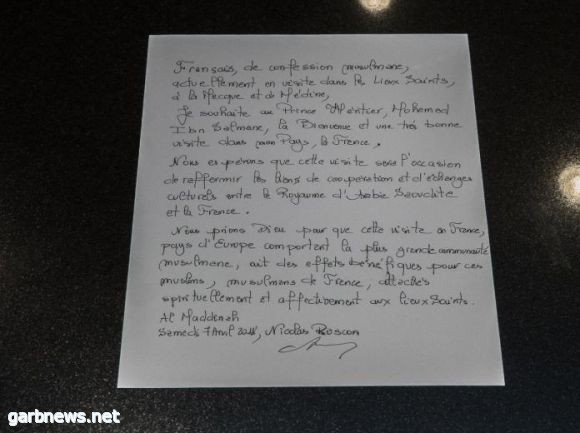 Français, de confession musulmane,
actuellement en visite dans les Lieux Saints,
à la Mecque et à Médine,
Je souhaite au Prince Héritier, Mohamed
Ibn Salmane, la Bienvenue et une très bonne
visite dans mon Pays, la France.
Nous espérons que cette visite sera l'occasion
de raffermir les liens de coopération et d'échanges
culturels entre le Royaume d'Arabie Saoudite
et la France.
Nous prions Dieu pour que cette visite en France,
pays d'Europe comportant la plus grande communauté
musulmane, ait des effets bénéfiques pour ces
muslims, musulmans de France, attachés
spirituellement et affectivement aux lieux Saints.
Al Maddinah
Samedi 7 Avril 2018, Nicolas Boscon
garbnews.net